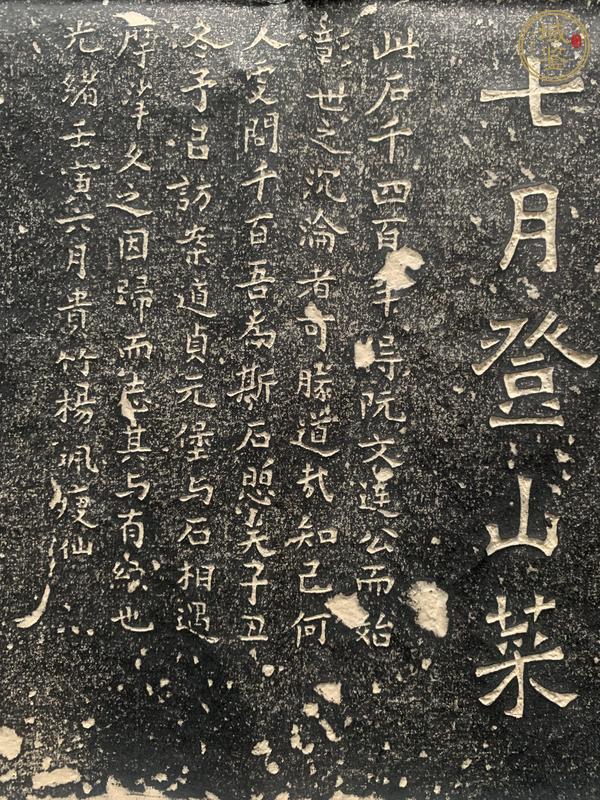 七月登山菜
此石千四百年得阮文達公而始
彰世之沉淪者可勝道哉知己何
人受問千百吾為斯石憩矣子丑
冬予名訪案道貞元堡与石相遇
摩挲久之因歸而志其与有緣也
光緒壬寅六月貴竹楊珮